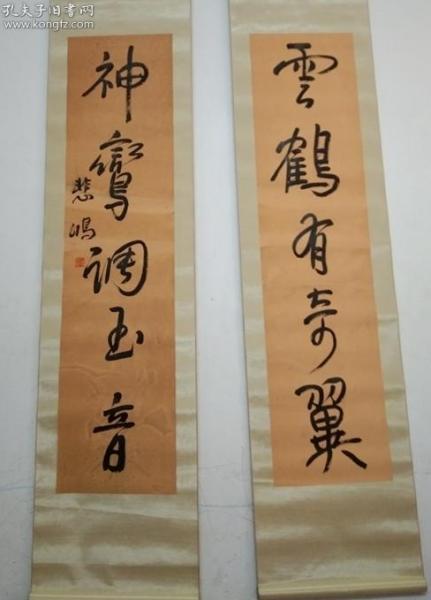 雲鶴有奇翼
神鸞調玉音
悲鴻
孔夫子旧书网
www.kongfz.com